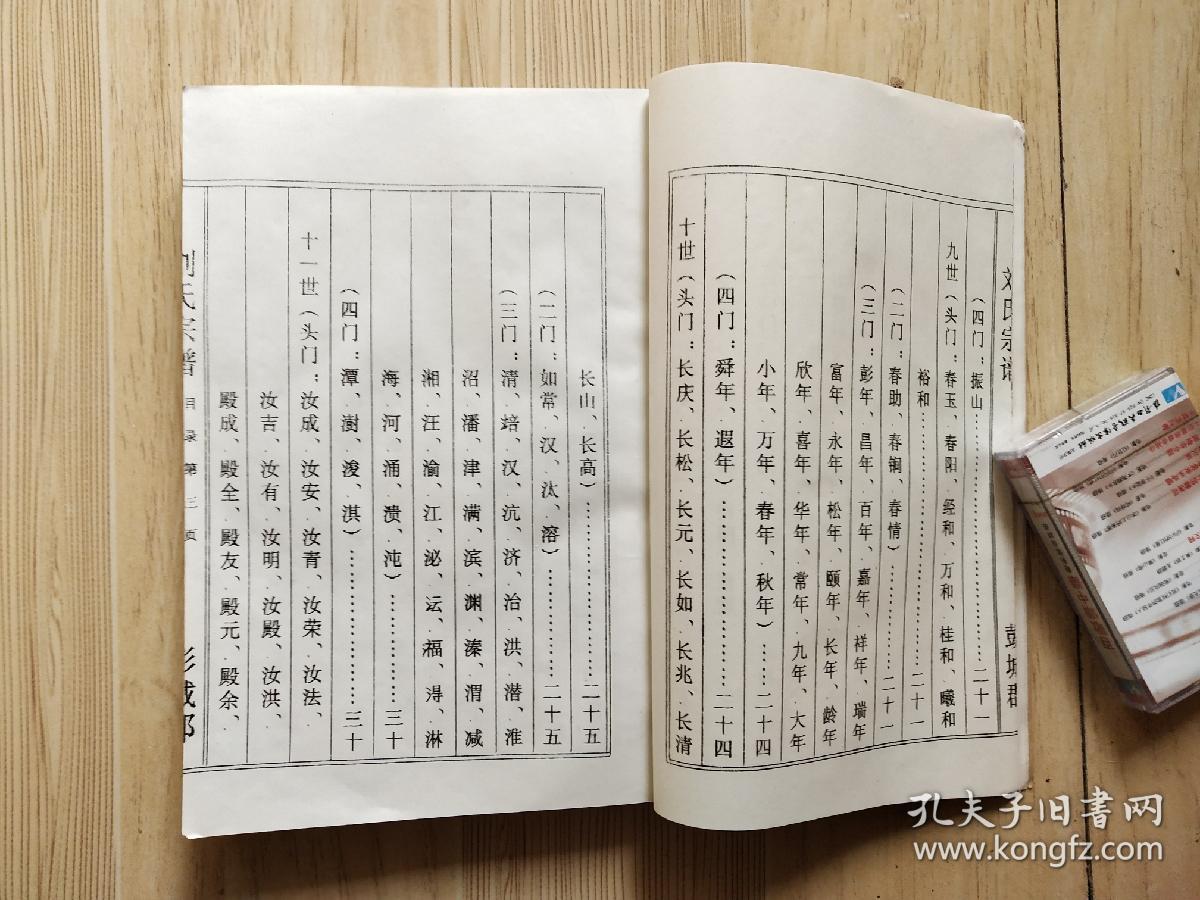 刘氏宗谱
彭城群
（四门：振山……………………二十一
九世（头门：春玉、春阳、经和、万和、桂和、曦和
裕和……………………二十一
（二门：春助、春铜、春情）……………二十一
（三门：彭年、昌年、百年、嘉年、祥年、瑞年
富年、永年、松年、颐年、长年、龄年
欣年、喜年、华年、常年、九年、大年
小年、万年、春年、秋年）……二十四
（四门：舜年、遐年）……………………二十四
十世（头门：长庆、长松、长元、长如、长兆、长清
长山、长高）……………………二十五
（二门：如常、汉、汰、溶）……………二十五
（三门：清、培、汉、沆、济、治、洪、潜、淮
沼、潘、津、满、滨、渊、溱、渭、减
湘、汪、渝、江、泌、沄、福、浔、淋
海、河、涌、溃、沌）……………三十
（四门：潭、澍、浚、淇）……………三十
十一世（头门：汝成、汝安、汝青、汝荣、汝法、
汝吉、汝有、汝明、汝殿、汝洪、
殿成、殿全、殿友、殿元、殿余、
刘氏宗谱 目录第三页
彭城郡
孔夫子旧书网
www.kongfz.com